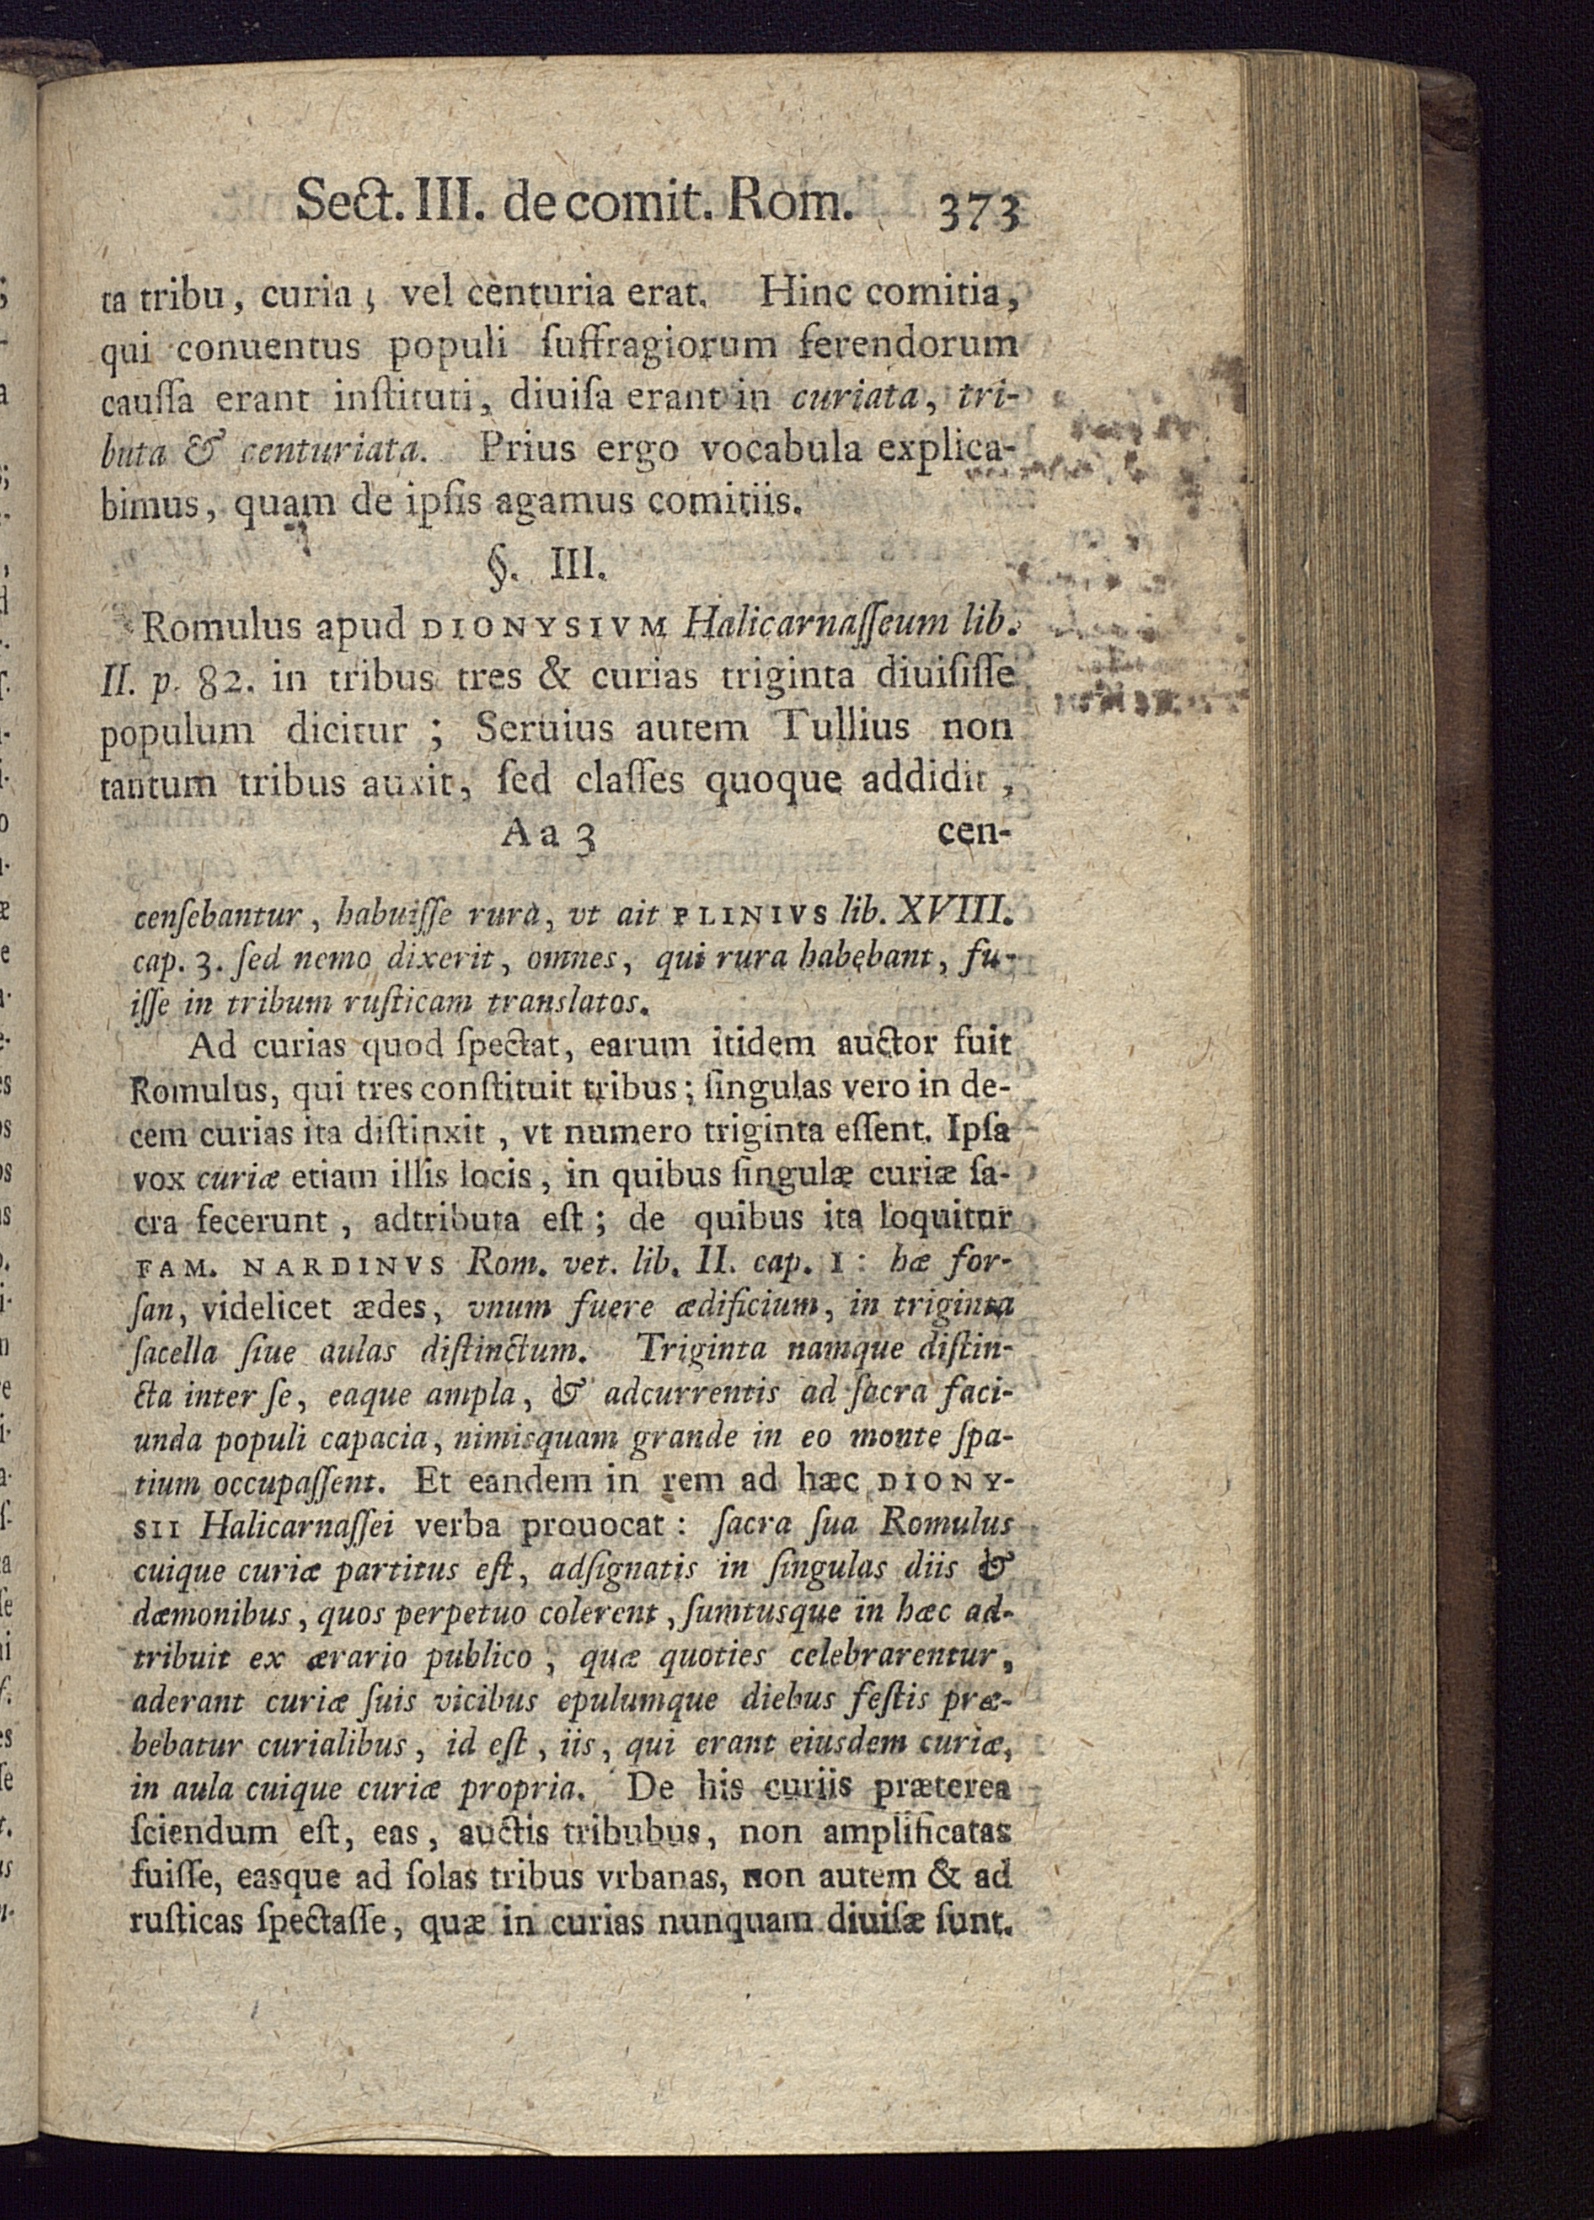 Sect. III. de comit. Rom. 373
ta tribu, curia; vel centuria erat. Hinc comitia,
qui conuentus populi ſuffragiorum ferendorum
cauſſa erant inſtituti, diuiſa erant in curiata, tri-
buta & centuriata. Prius ergo vocabula explica-
bimus, quam de ipſis agamus comitiis.
§. III.
Romulus apud DIONYSIVM Halicarnaſſeum lib.
II. p. 82. in tribus tres & curias triginta diuiſiſſe
populum dicitur ; Seruius autem Tullius non
tantum tribus auxit, ſed claſſes quoque addidit,
Aa 3 cen-
cenſebantur, habuiſſe rura, vt ait PLINIVS lib. XVIII.
cap. 3. ſed nemo dixerit, omnes, qui rura habebant, fu-
iſſe in tribum ruſticam translatos.
Ad curias quod ſpectat, earum itidem auctor fuit
Romulus, qui tres conſtituit tribus; ſingulas vero in de-
cem curias ita diſtinxit, vt numero triginta eſſent. Ipſa
vox curiæ etiam illis locis, in quibus ſingulæ curiæ ſa-
cra fecerunt, adtributa eſt; de quibus ita loquitur
FAM. NARDINVS Rom. vet. lib. II. cap. 1: hæ for-
ſan, videlicet ædes, vnum fuere ædificium, in triginta
ſacella ſiue aulas diſtinctum. Triginta namque diſtin-
cta inter ſe, eaque ampla, & adcurrentis ad ſacra faci-
unda populi capacia, nimisquam grande in eo monte ſpa-
tium occupaſſent. Et eandem in rem ad hæc DIONY-
SII Halicarnaſſei verba prouocat: ſacra ſua Romulus
cuique curiæ partitus eſt, adſignatis in ſingulas diis &
dæmonibus, quos perpetuo colerent, ſumtusque in hæc ad-
tribuit ex ærario publico, quæ quoties celebrarentur,
aderant curiæ ſuis vicibus epulumque diebus feſtis præ-
bebatur curialibus, id eſt, iis, qui erant eiusdem curiæ,
in aula cuique curiæ propria. De his curiis præterea
ſciendum eſt, eas, auctis tribubus, non amplificatas
fuiſſe, easque ad ſolas tribus vrbanas, non autem & ad
ruſticas ſpectaſſe, quæ in curias nunquam diuiſæ ſunt.